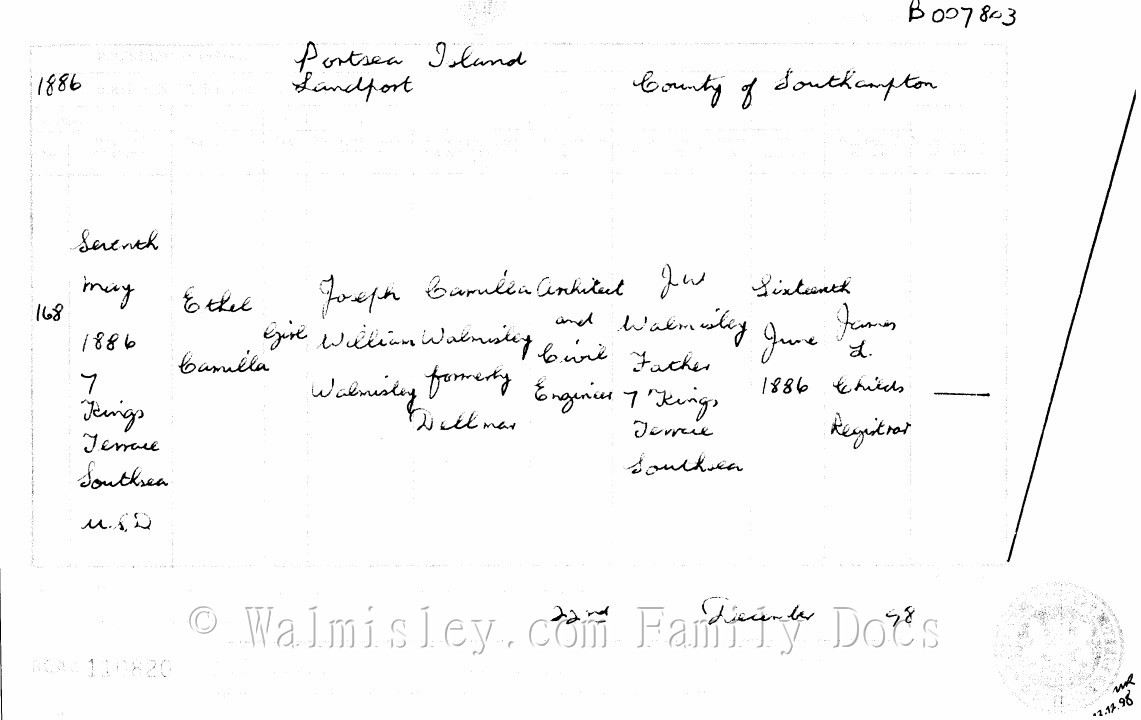 B 007803
Portsea Island
1886 Landport County of Southampton
168
Seventh
May
1886
7
Kings
Terrace
Southsea
U.S.D
Ethel
Camilla
Girl
Joseph
William
Walmisley
Camilla
Walmisley
formerly
Dellmar
Architect
and
Civil
Engineer
J W
Walmisley
Father
7 Kings
Terrace
Southsea
Sixteenth
June
1886
James
L.
Childs
Registrar
22nd December 98
© Walmisley.com Family Docs
110820